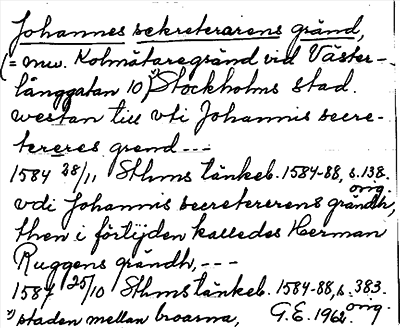 Johannes sekreterarens gränd,
(= nuv. Kolmätaregränd vid Väster-
långgatan 10,) x) Stockholms stad.
westan till vti Johannis secre-
tereres grend ---
1584 28/11 Sthms tänkeb. 1584-88, s. 138.
orig.
vdi Johannis secretererens grändh,
then i förtijden kalledes Herman
Ruggens grändh, ---
1587 25/10 Sthms tänkeb. 1584-88, s. 383.
orig.
x) staden mellan broarna, G.E. 1962.